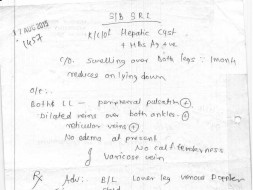 S/B S.R.I
17 AUG 2019
1457
K/C/O/ Hepatic Cyst
+ HBs Ag +ve
C/O. swelling over Both legs : 1 month
reduces on lying down
O/E:-
Both LL - peripheral palpation (+)
Dilated veins over both ankles. (+)
reticular veins (+)
No edema at present
No calf tenderness
varicose vein
Rx Adv: B/L Lower leg venous Doppler